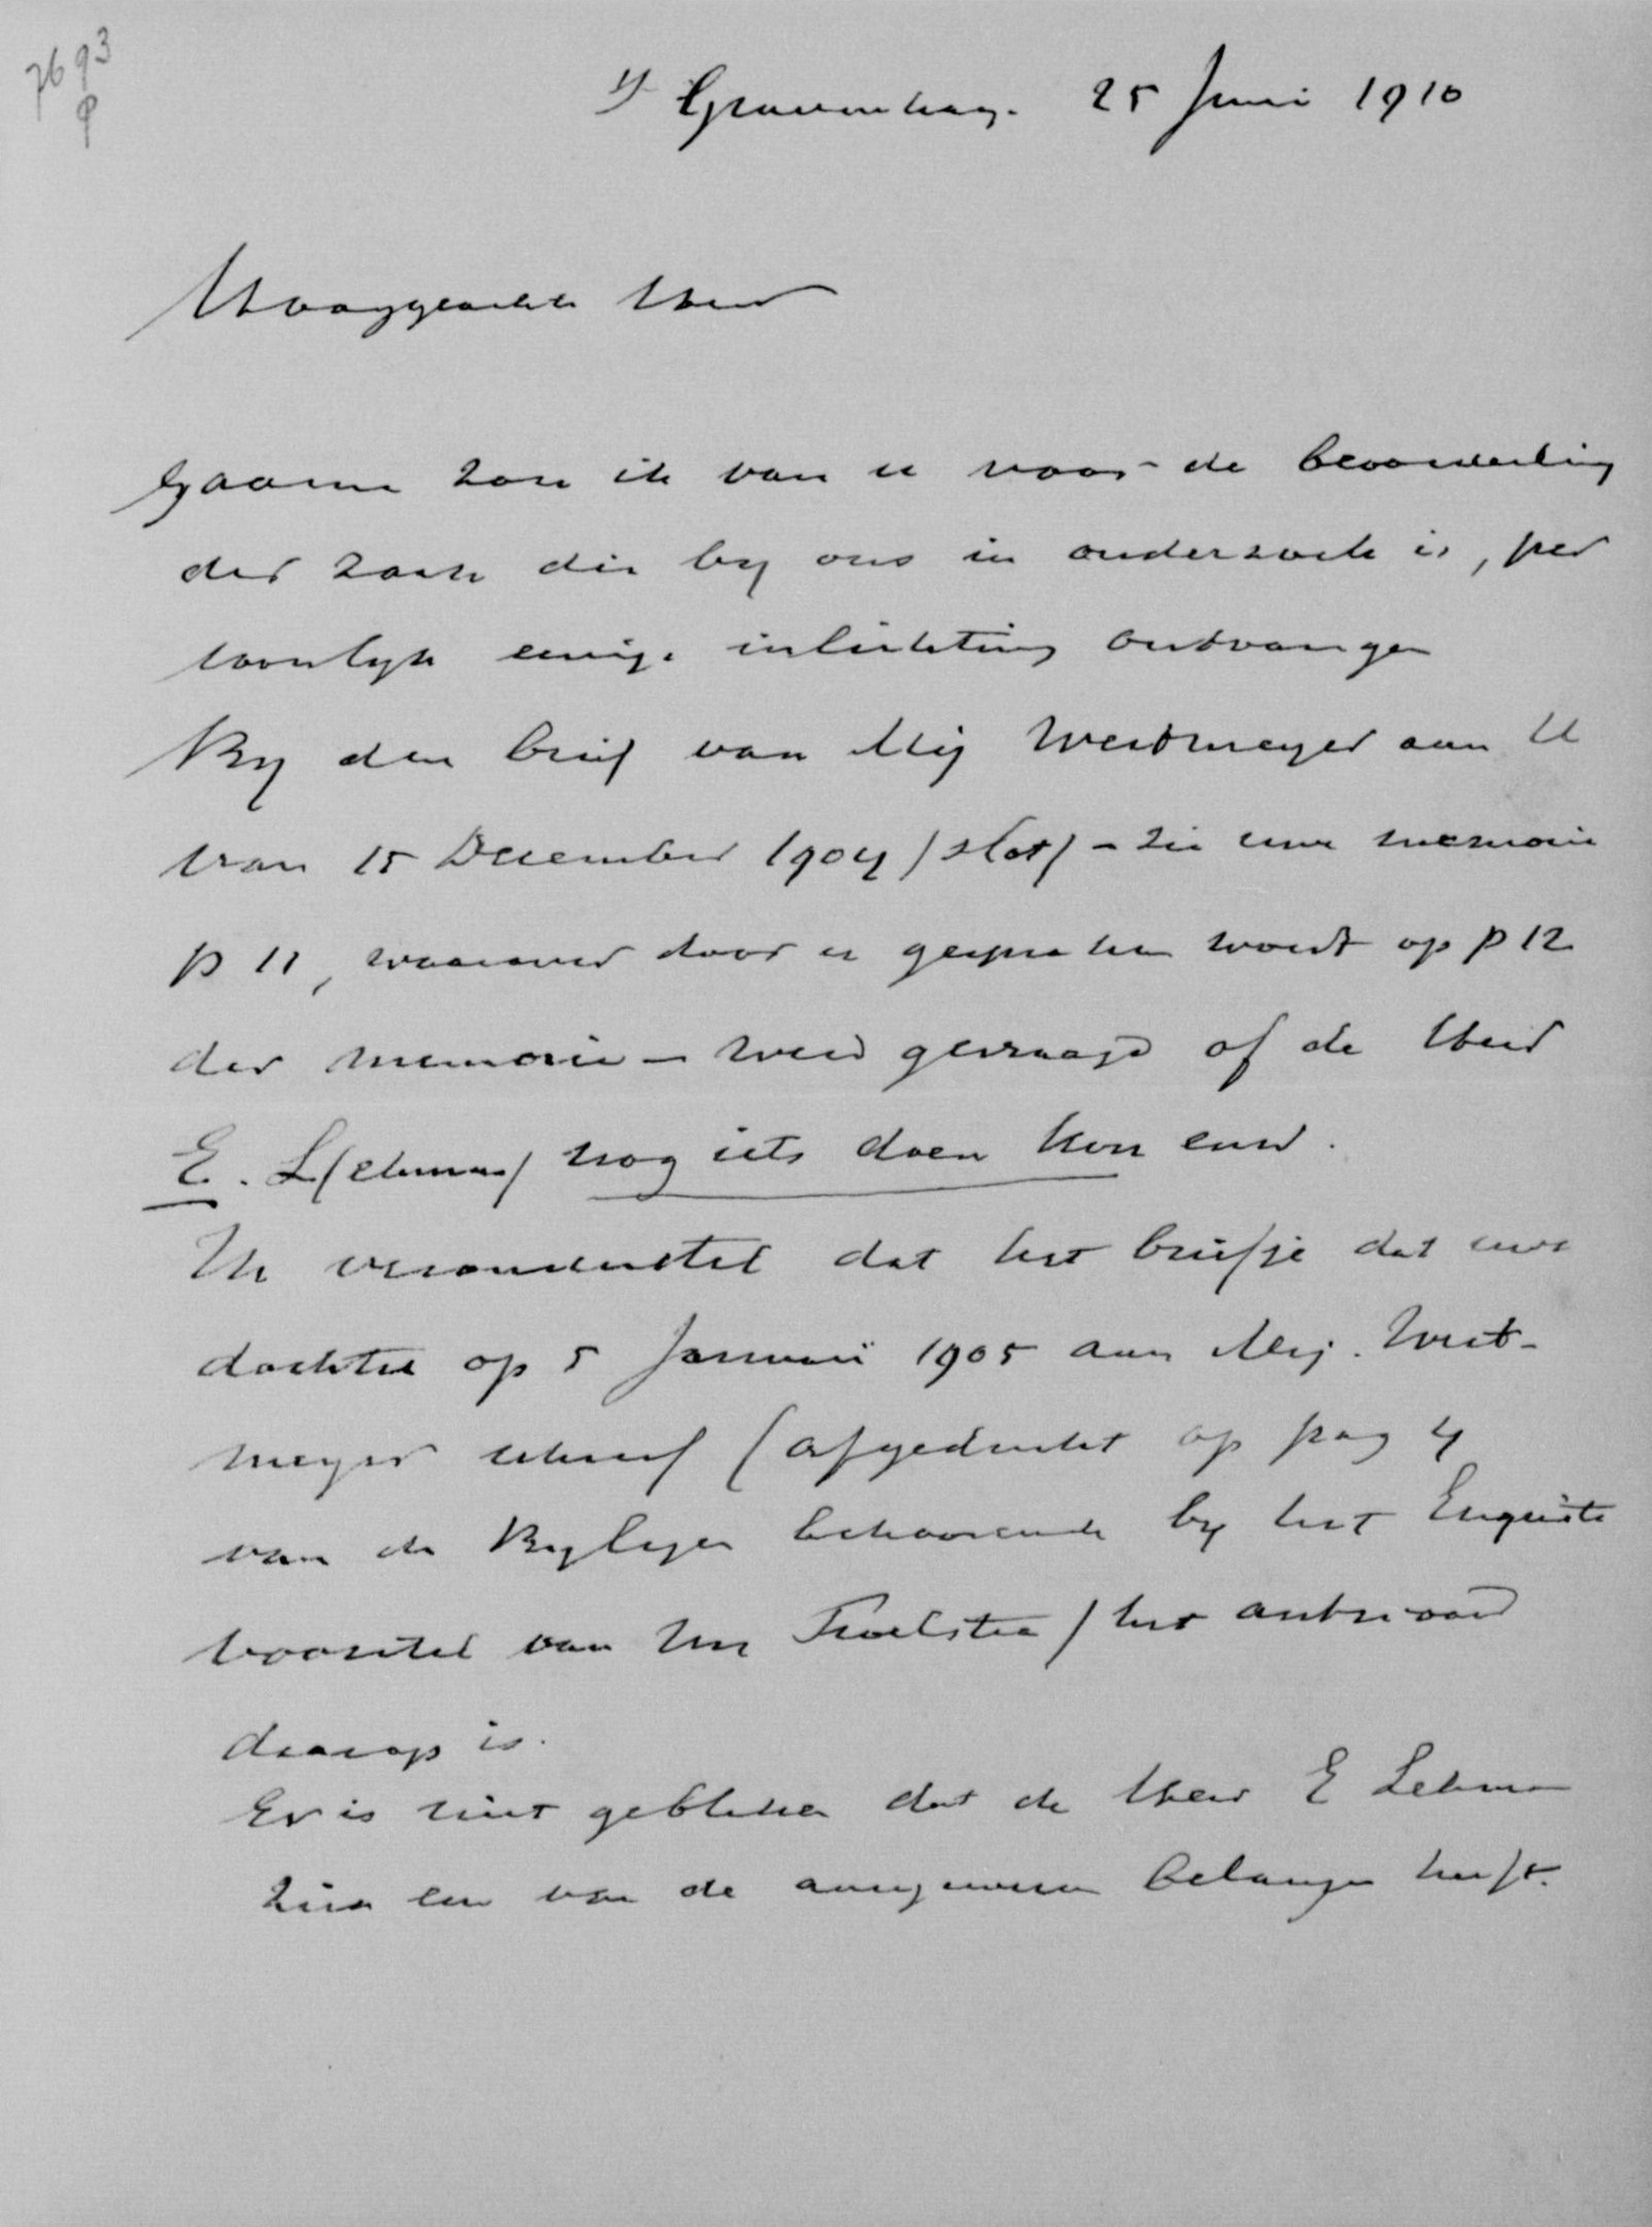 7693
P
's Gravenhage. 25 Juni 1910
Hooggeachte Heer
Gaarne zou ik van u voor de beoordeeling
der zaak die by ons in onderzoek is, per
soonlyk eenige inlichting ontvangen
By den brief van Mej Westmeyer aan U
van 15 December 1904 (slot) - zie uwe memorie
p 11, waarover door u gesproken wordt op p 12
der memorie - werd gevraagd of de Heer
E. L(ehman) nog iets doen kon enz.
Ik veronderstel dat het briefje dat uwe
dochter op 5 Januari 1905 aan Mej. West-
meyer schreef (afgedrukt op pag 4
van de Bylagen behoorende by het Enquête
voorstel van Mr Troelstra) het antwoord
daarop is.
Er is niet gebleken dat de Heer E Lehman
zich een van de aangewezen belangen heeft.